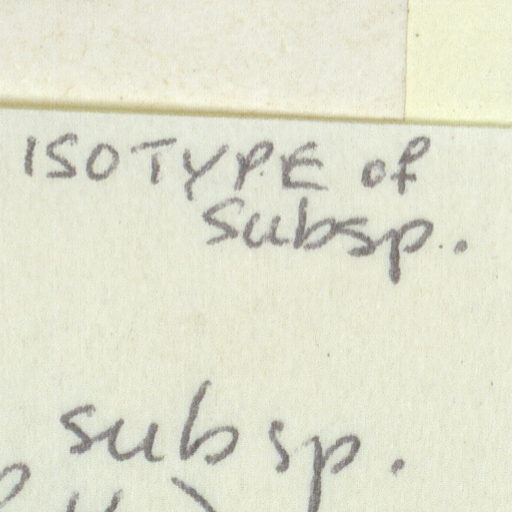 ISOTYPE of
subsp.
subsp.